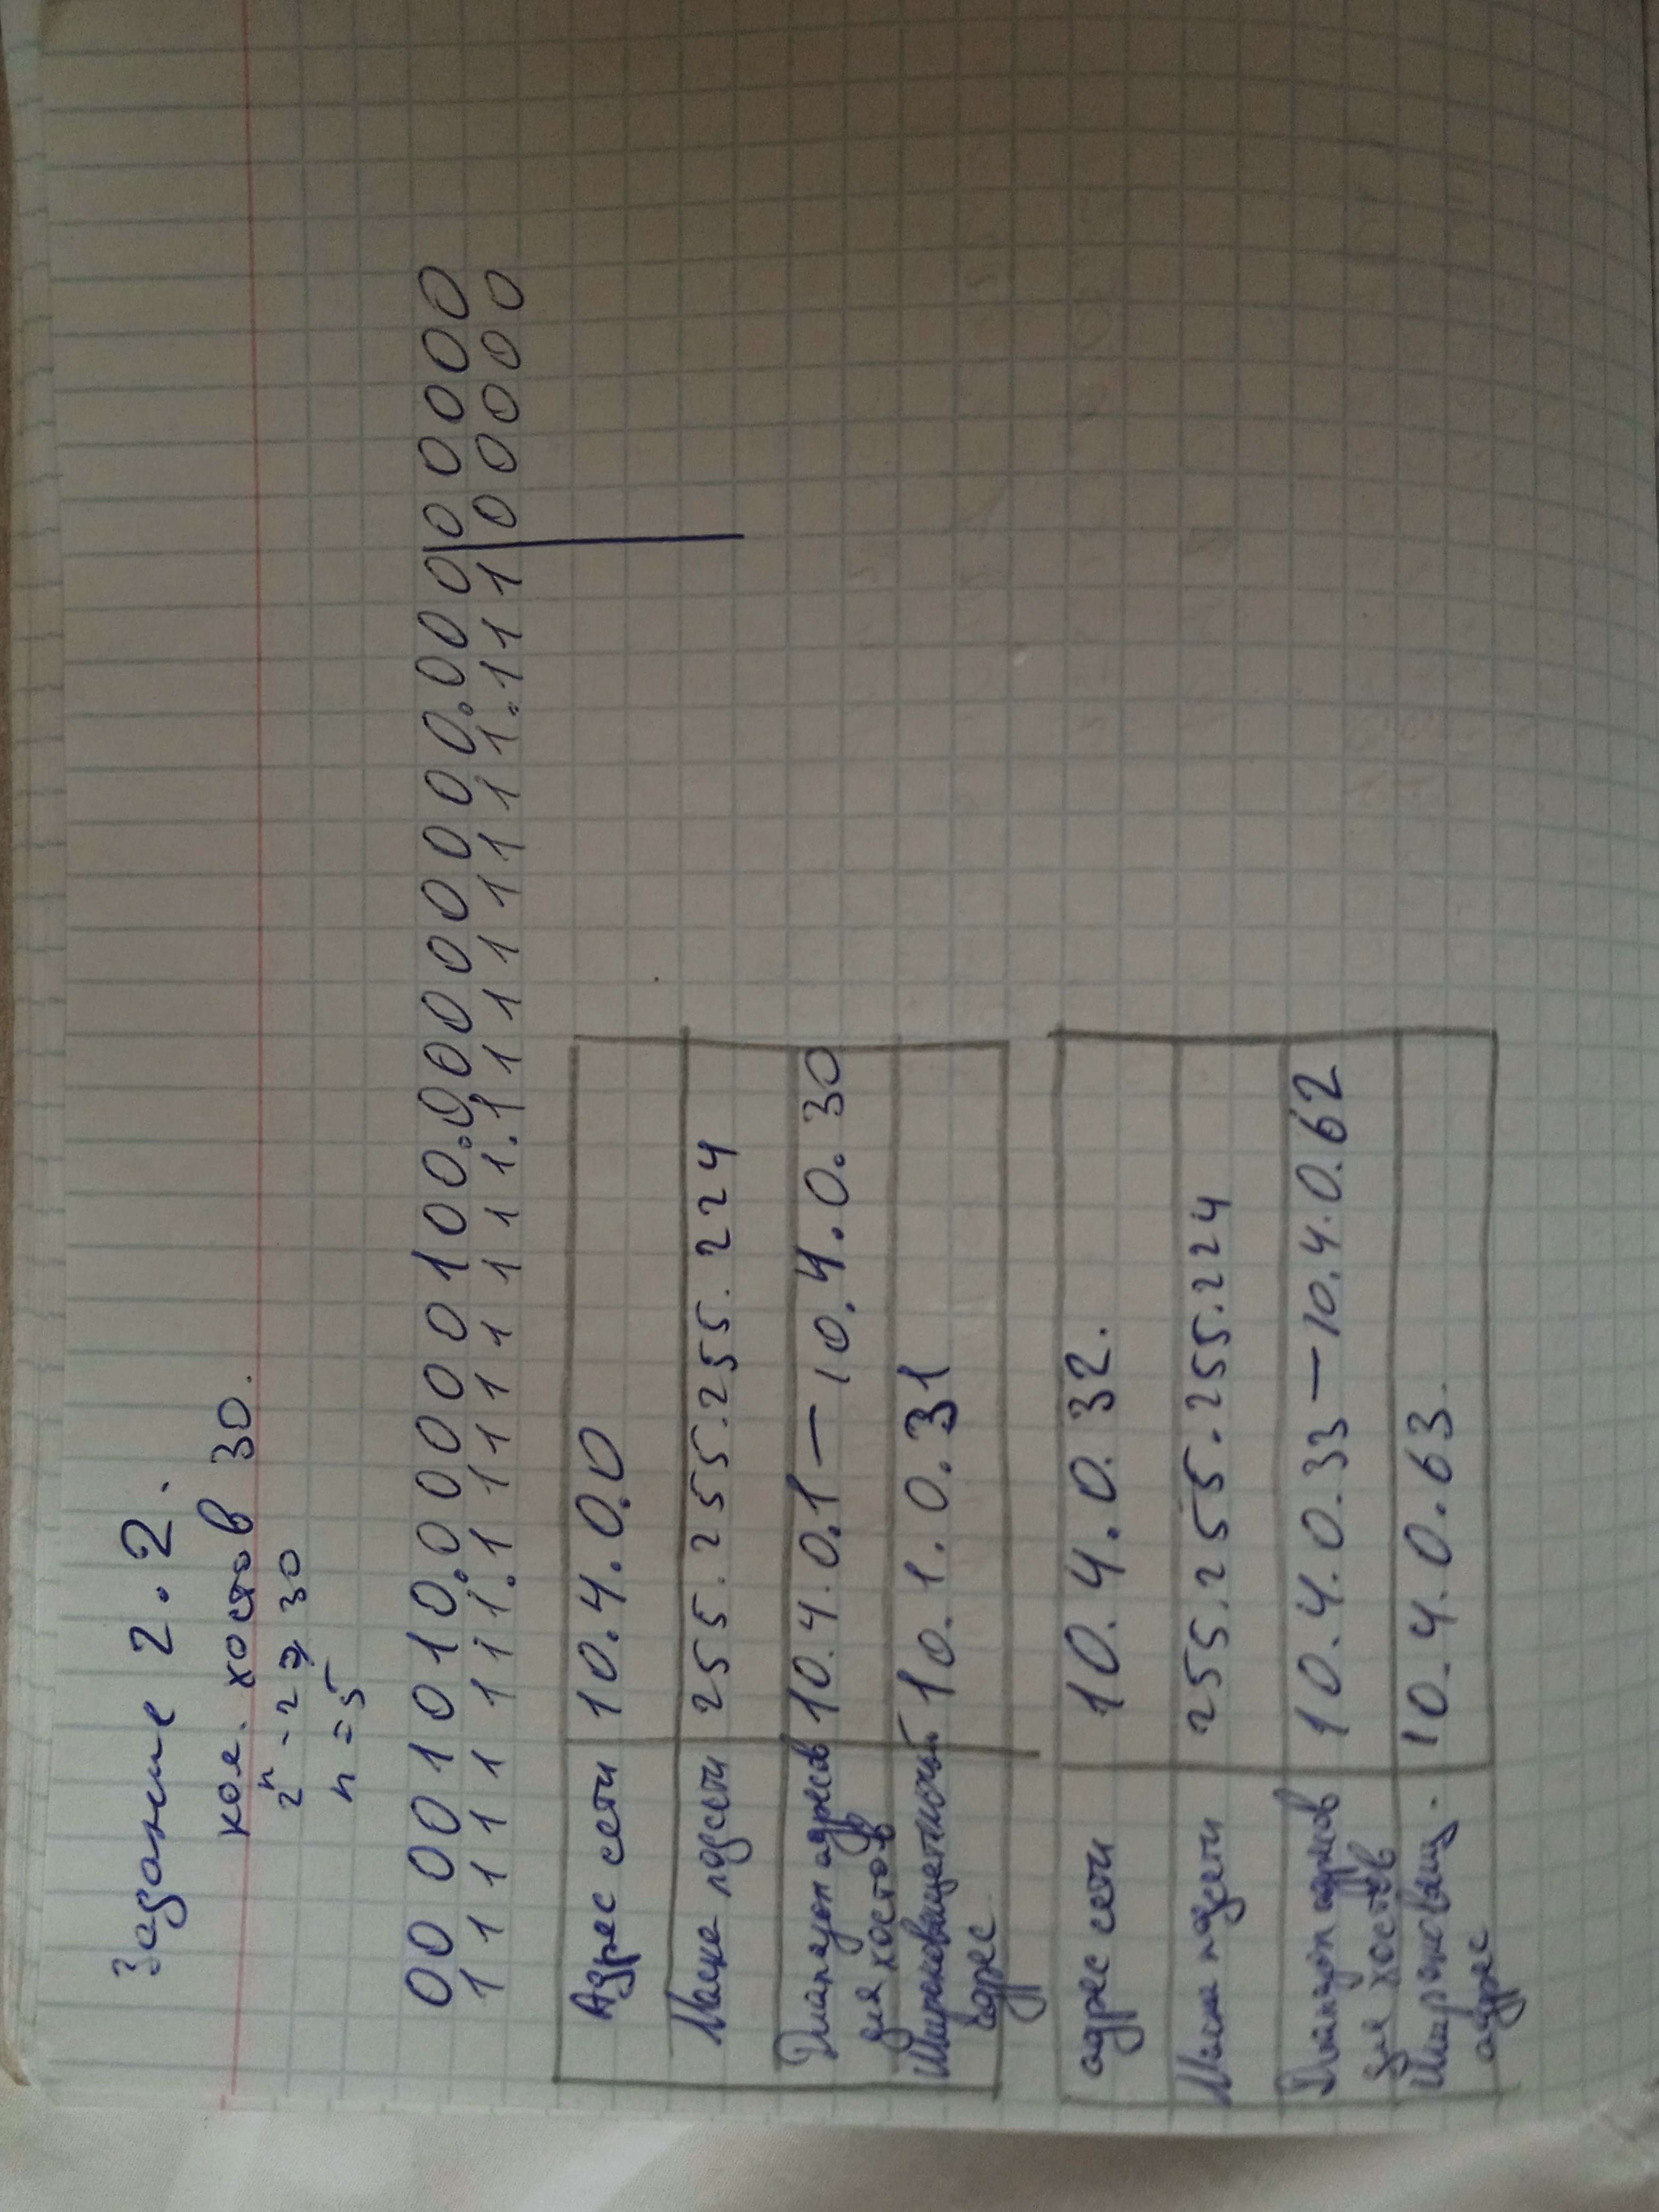 Задание 2.2.
кол. хостов 30.
2ⁿ - 2 ≥ 30
n = 5
00001010.00000100.00000000.000|00000
11111111.11111111.11111111.111|00000
Адрес сети 10.4.0.0
Маска подсети 255.255.255.224
Диапазон адресов 10.4.0.1 — 10.4.0.30
для хостов
Широковещательный 10.1.0.31
адрес
адрес сети 10.4.0.32.
Маска подсети 255.255.255.224
Диапазон адресов 10.4.0.33 — 10.4.0.62
для хостов
Широковещ. 10.4.0.63.
адрес